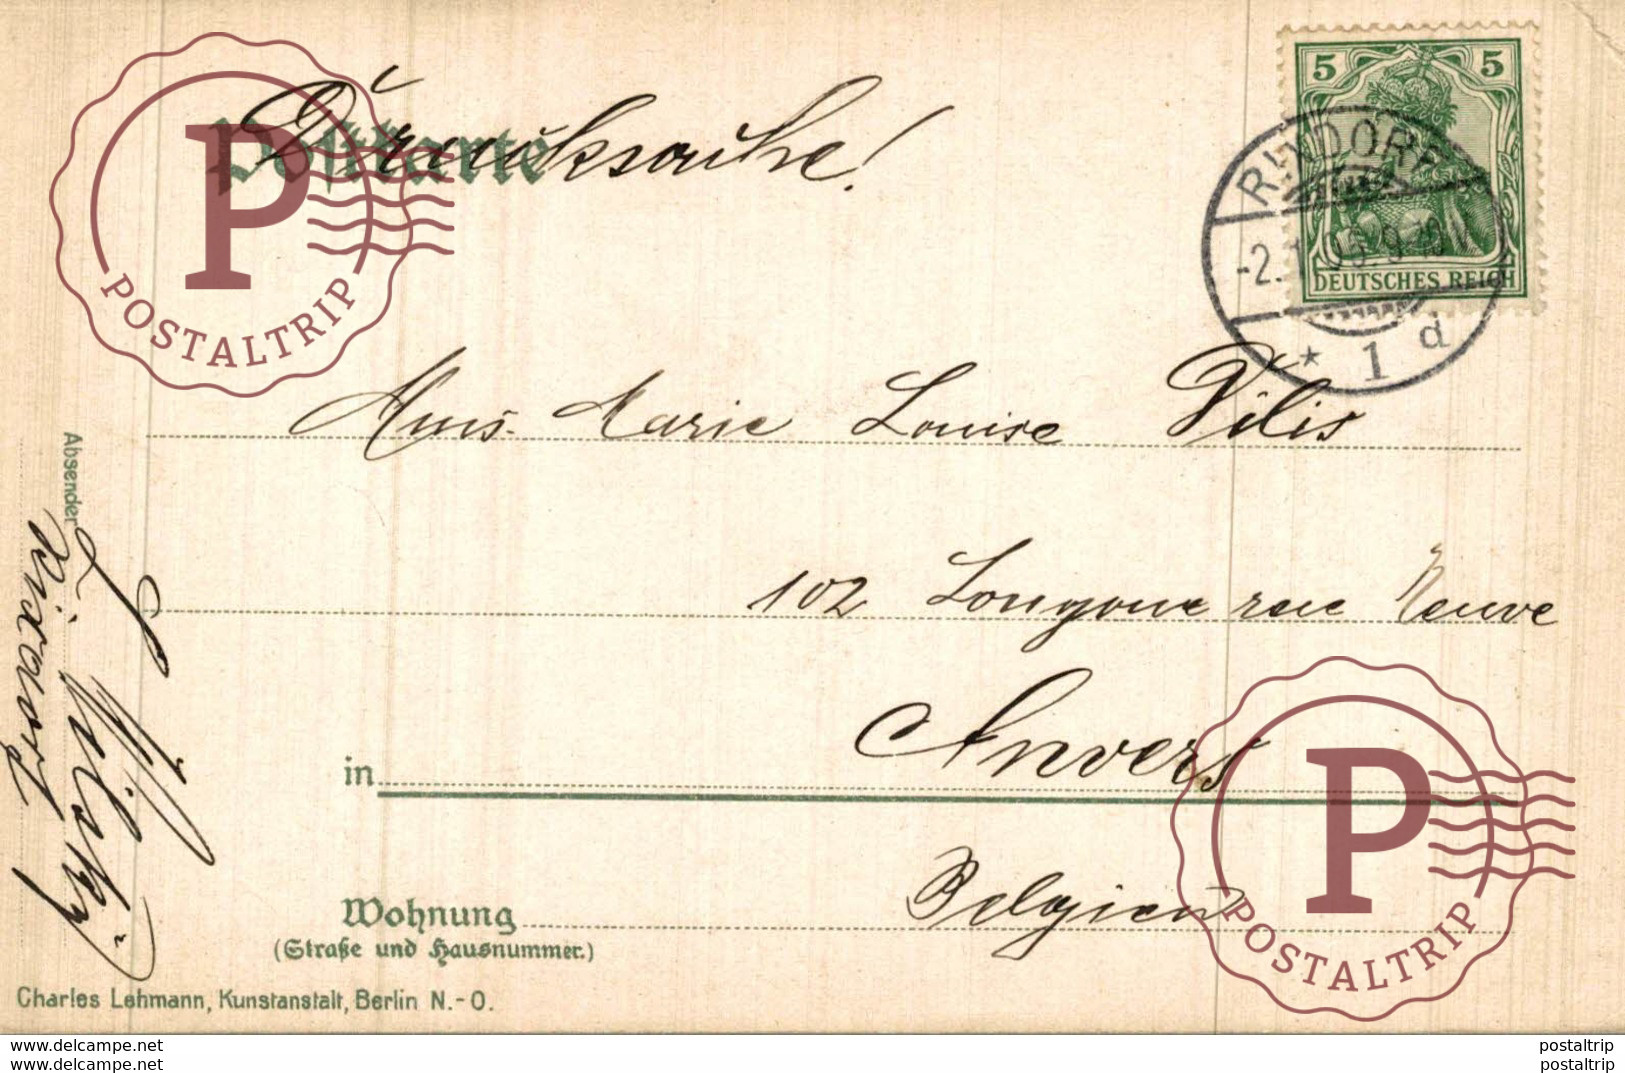 Postkarte
Drucksache!
5 5
DEUTSCHES REICH
RIXDORF
-2. 05. 9-10V
* 1 d
Marie Louise Vilis
102 Longue rue Neuve
in Anvers
Belgien
Wohnung
(Straße und Hausnummer.)
Absender
Charles Lehmann, Kunstanstalt, Berlin N.-O.
P
POSTALTRIP
P
POSTALTRIP
www.delcampe.net postaltrip
www.delcampe.net postaltrip